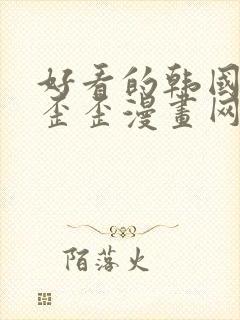 好看的韩国
歪歪漫畫网
陌落火